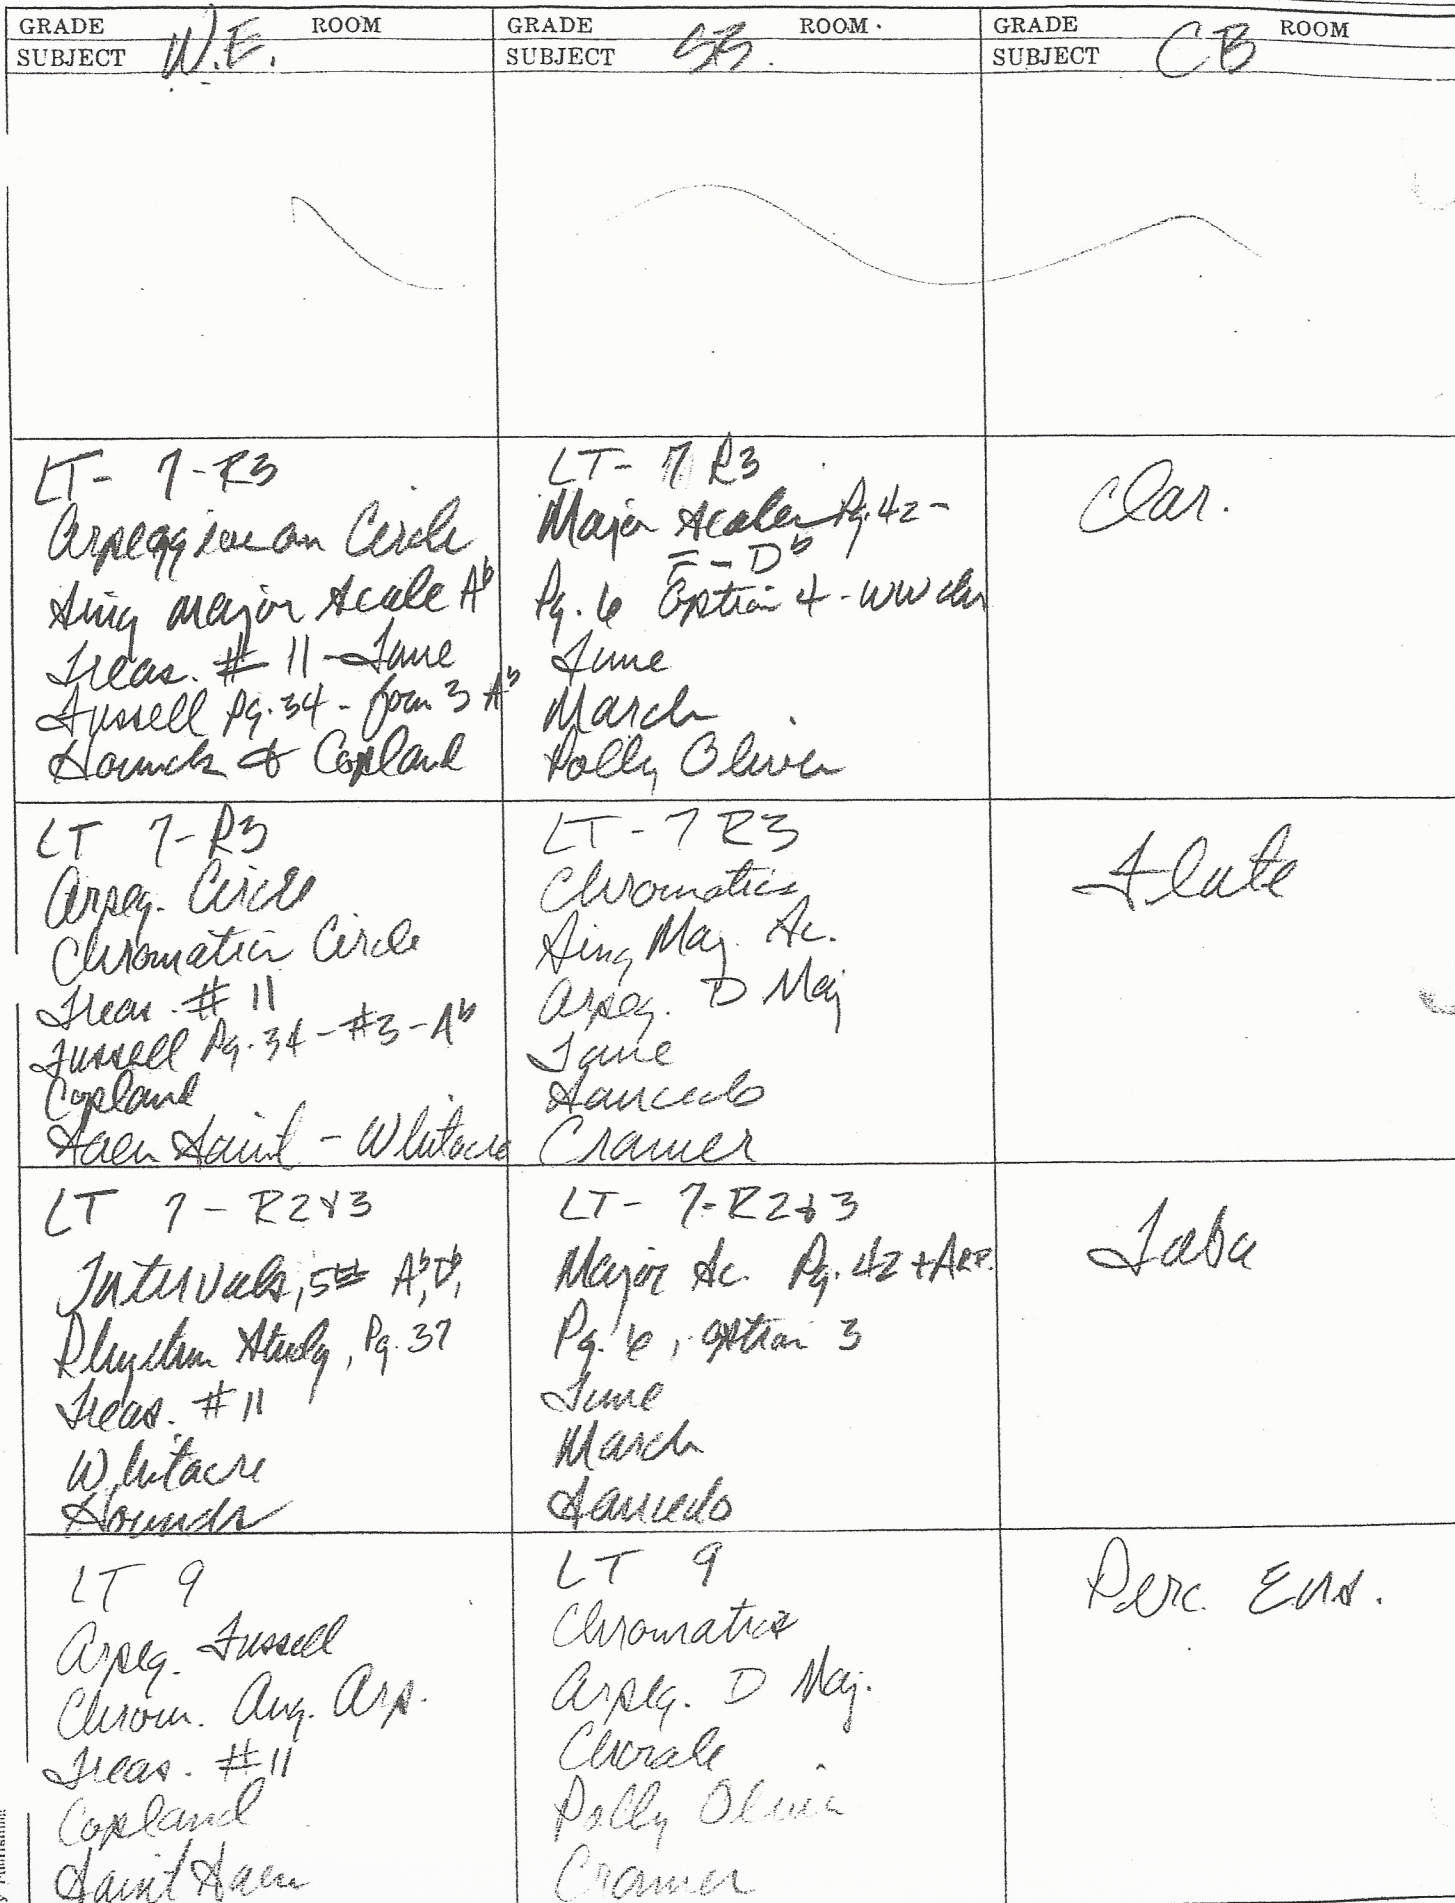 GRADE ROOM GRADE ROOM GRADE ROOM
SUBJECT W.E. SUBJECT SB. SUBJECT CB
LT- 7-R3
Arpeggios on Circle
Sing major scale Ab
Treas. #11-Tune
Fussell Pg.34- from 3 Ab
Hounds & Copland
LT- 7 R3
Major Scales Pg.42-
F-Db
Pg. 6 Option 4-WW
Tune
March
Polly Oliver
Clar.
LT 7-R3
Arpeg. Circle
Chromatic Circle
Treas. #11
Fussell Pg.34-#3-Ab
Copland
Saen Saint - Whitacre
LT-7 R3
Chromatics
Sing Maj. Sc.
Arpeg. D Maj
Tune
Salcedo
Cramer
Flute
LT 7-R2&3
Intervals, 5th Ab, Db,
Rhythm Study, Pg.37
Treas. #11
Whitacre
Hounds
LT- 7-R2&3
Major Sc. Pg.42+Arp.
Pg. 6, option 3
Tune
March
Tuba
LT 9
Arpeg. Fussell
Chrom. Aug. Arp.
Treas. #11
Copland
Saint Saen
LT 9
Chromatics
Arpeg. D Maj.
Chorale
Polly Oliver
Cramer
Perc. Ens.